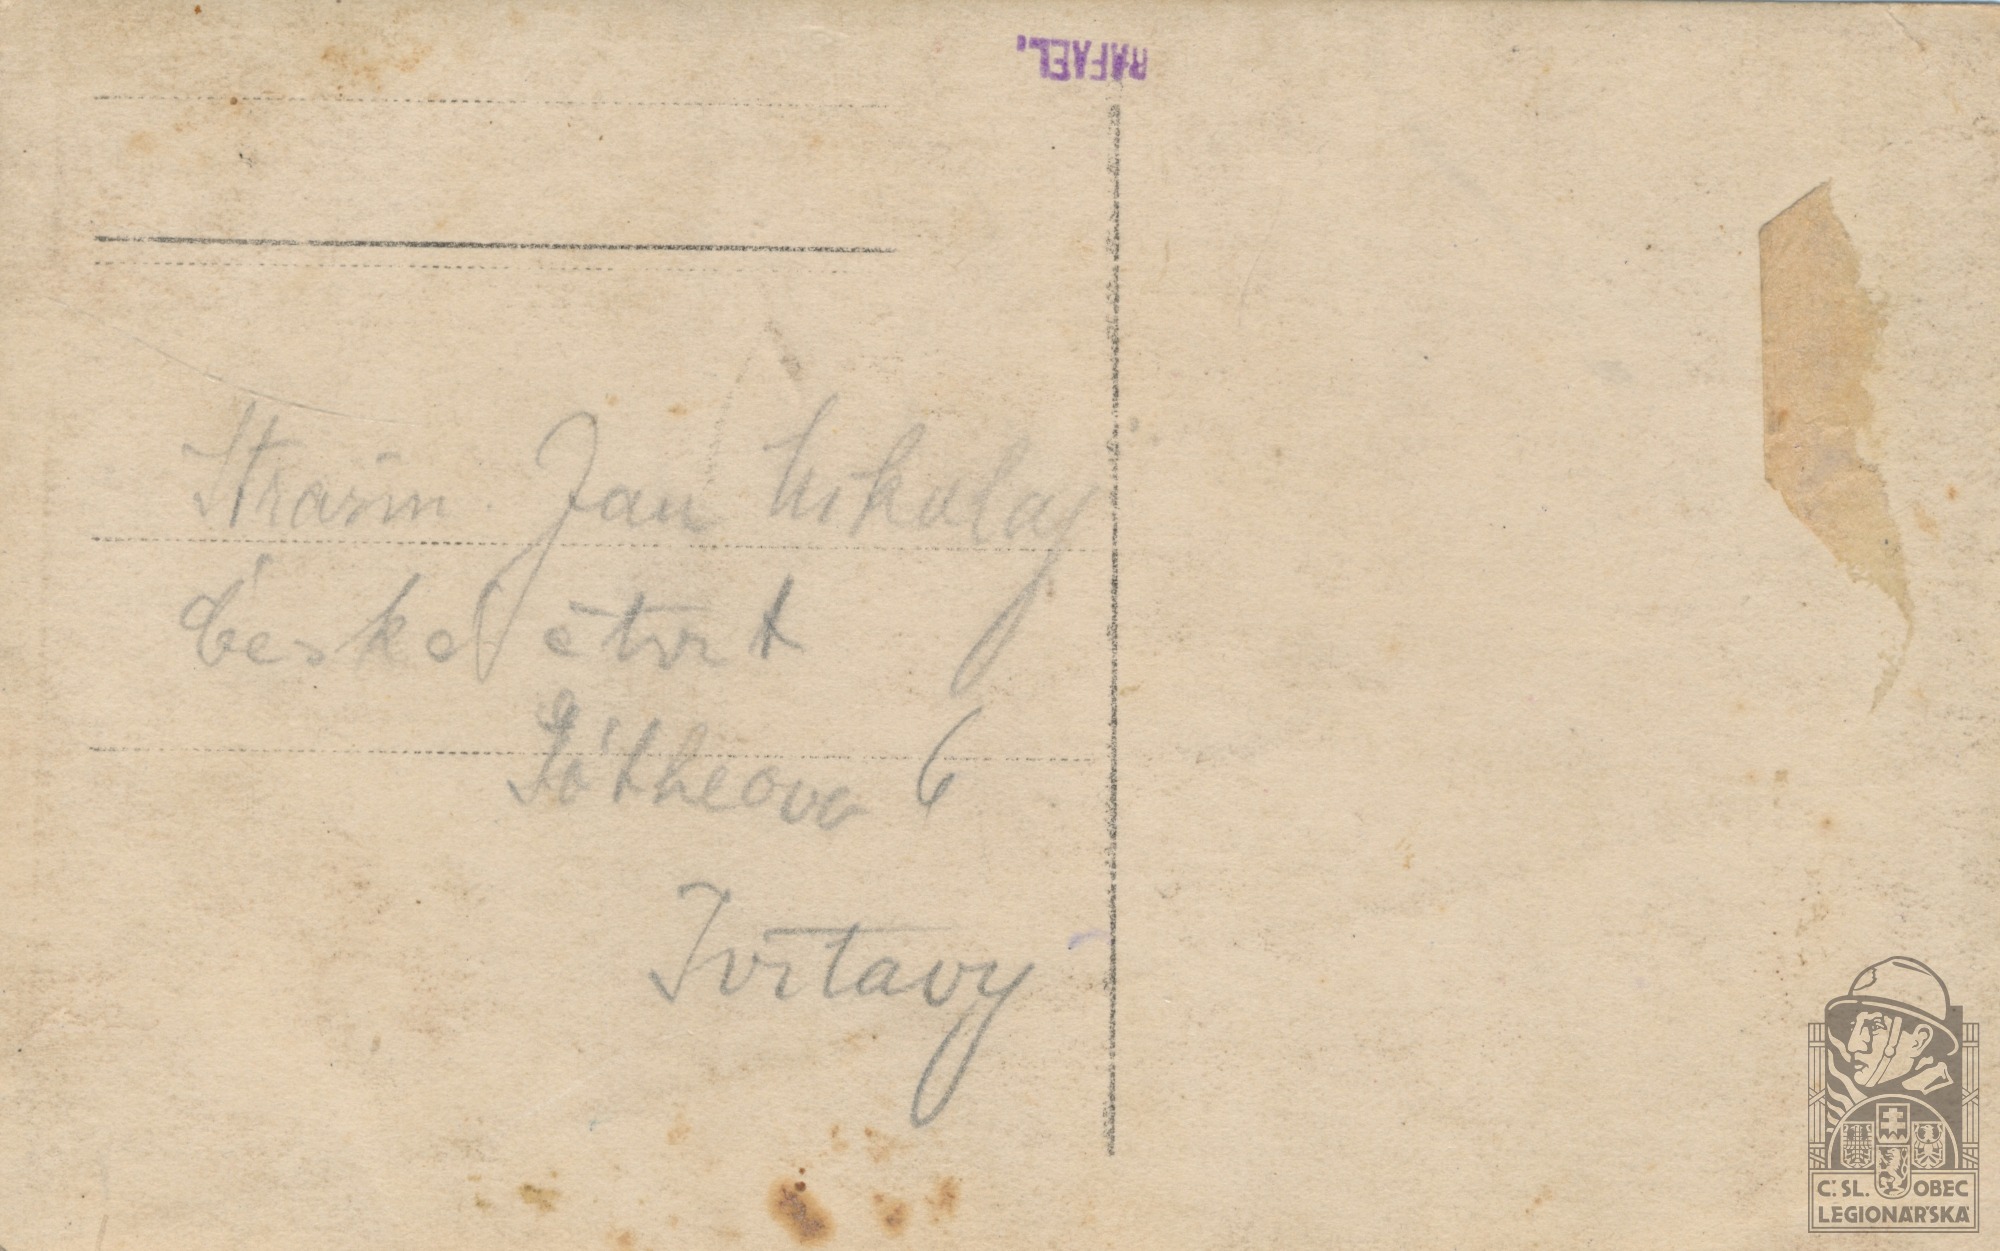 RAFAEL.
Jan Mikolaj
České čtvrt
Götheova 6
Svitavy
Č.SL. OBEC
LEGIONÁŘSKÁ